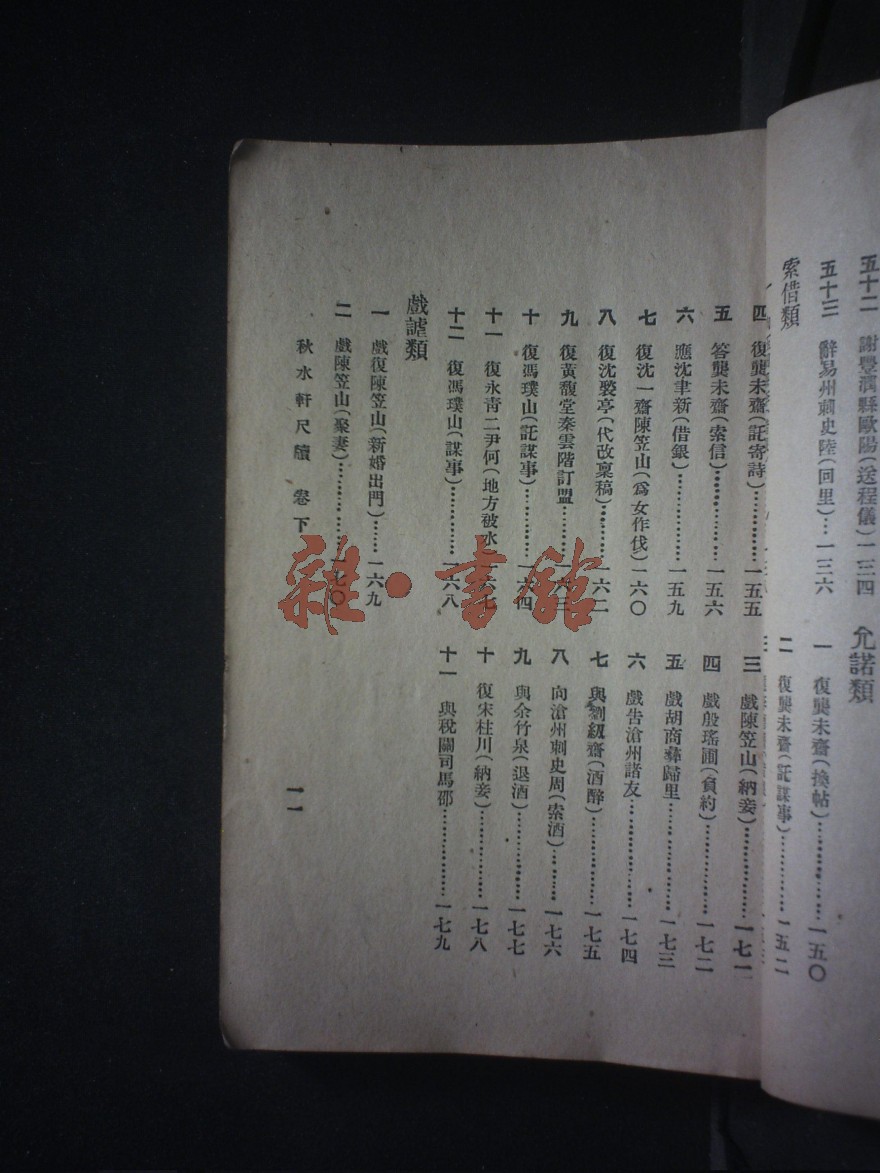 五十二　謝豐潤縣歐陽（送程儀）一三四
五十三　辭易州刺史陸（回里）…一三六
索借類
允諾類
一　復龔未齋（換帖）…………一五〇
二　復龔未齋（託謀事）…………一五二
四　復龔未齋（託寄詩）………一五五
五　答龔未齋（索信）…………一五六
六　應沈聿新（借銀）…………一五九
七　復沈一齋陳笠山（爲女作伐）一六〇
八　復沈褧亭（代改稟稿）………一六二
九　復黃馥堂秦雲階訂盟………一六三
十　復馮璞山（託謀事）………一六四
十一　復永靑二尹何（地方被水）一六七
十二　復馮璞山（謀事）…………一六八
戲謔類
一　戲復陳笠山（新婚出門）……一六九
二　戲陳笠山（聚妻）……………一七〇
三　戲陳笠山（納妾）……………一七一
四　戲殷瑤圃（負約）……………一七二
五　戲胡商彝歸里………………一七三
六　戲告滄州諸友………………一七四
七　與劉紉齋（酒醉）……………一七五
八　向滄州刺史周（索酒）………一七六
九　與余竹泉（退酒）……………一七七
十　復宋桂川（納妾）……………一七八
十一　與稅關司馬邵………………一七九
秋水軒尺牘　卷下
一一
雜·書館